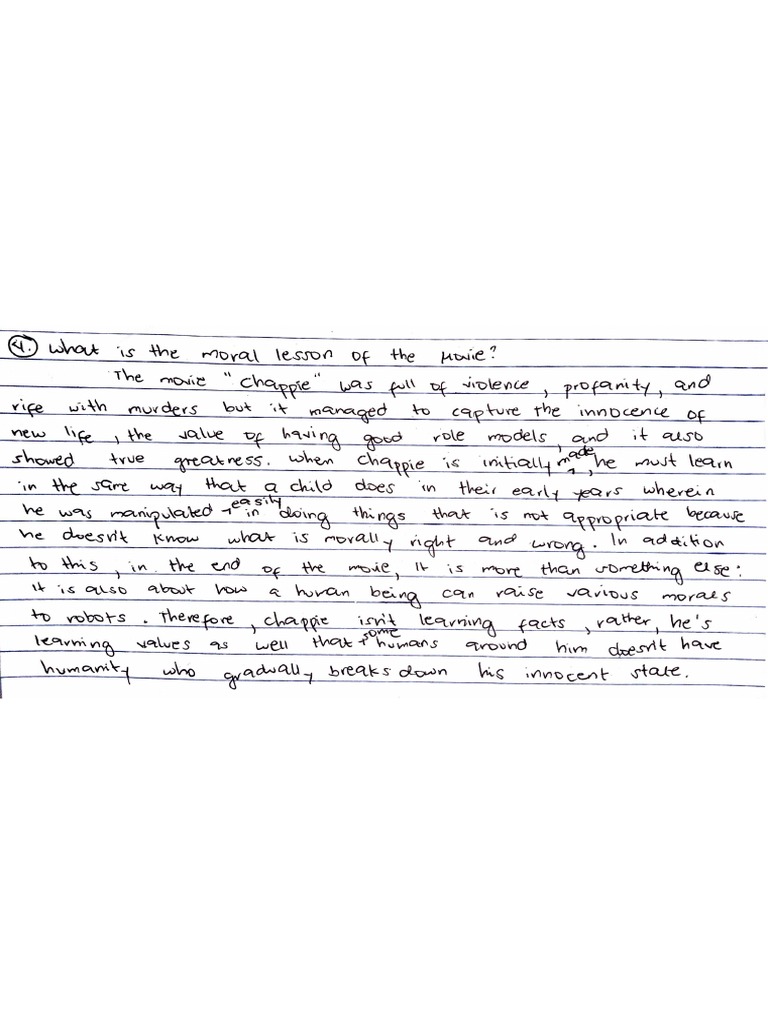 4. What is the moral lesson of the Movie?
The movie "Chappie" was full of violence, profanity, and
rife with murders but it managed to capture the innocence of
new life, the value of having good role models, and it also
showed true greatness. When Chappie is initially made, he must learn
in the same way that a child does in their early years wherein
he was manipulated easily in doing things that is not appropriate because
he doesn't know what is morally right and wrong. In addition
to this, in the end of the movie, It is more than something else:
It is also about how a human being can raise various morals
to robots. Therefore, chappie isn't learning facts, rather, he's
learning values as well that some humans around him doesn't have
humanity who gradually breaks down his innocent state.